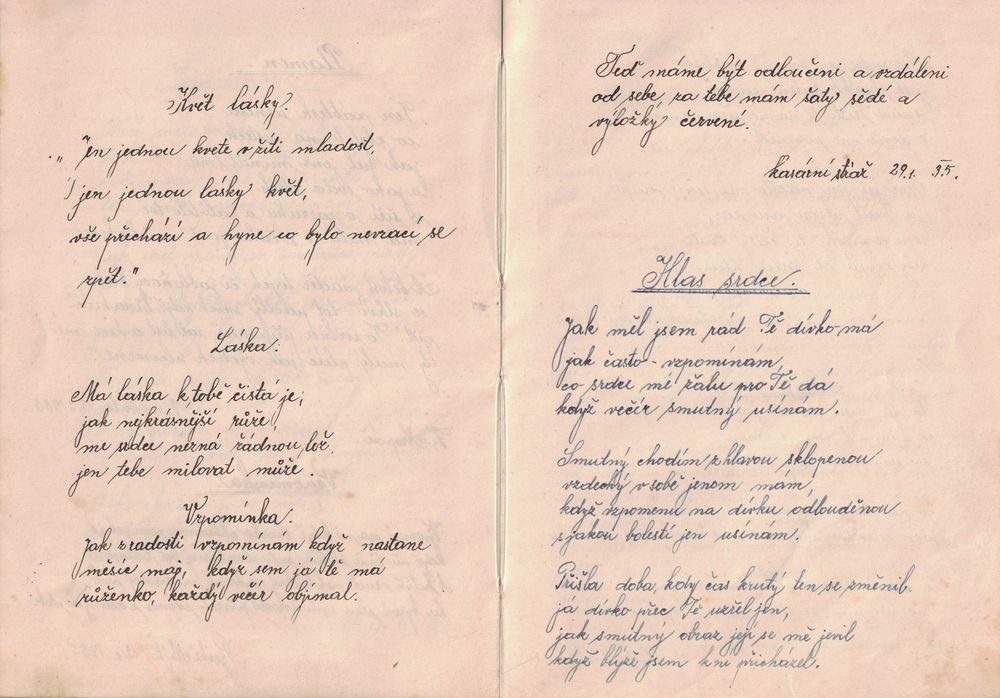 Květ lásky.
„Jen jednou kvete v žití mladost,
jen jednou lásky květ,
vše přechází a hyne co bylo nevrací se
zpět."
Láska.
Má láska k tobě čistá je,
jak nejkrásnější růže,
me srdce nezná žádnou lož.
jen tebe milovat může.
Vzpomínka.
Jak z radostí vzpomínám když nastane
měsíc maj, když sem já tě má
růženko, každý večír objímal.
Teď máme být odloučeni a vzdáleni
od sebe, za tebe mám šaty šědé a
výložky červené.
kasární stráž 29.1. 35.
Hlas srdce.
Jak měl jsem rád Tě dívko má
jak často - vzpomínám,
co srdce mé žalu pro Tě dá
když večír smutný usínám.
Smutný chodím z hlavou sklopenou
vzdechy v sobě jenom mám,
když vzpomenu na dívku odlouděnou
z jakou bolestí jen usínám.
Přišla doba, kdy čas krutý ten se změnil.
já dívko přec Tě uzřel jen,
jak smutný obraz její se mě jevil
když blýže jsem k ní přicházel.